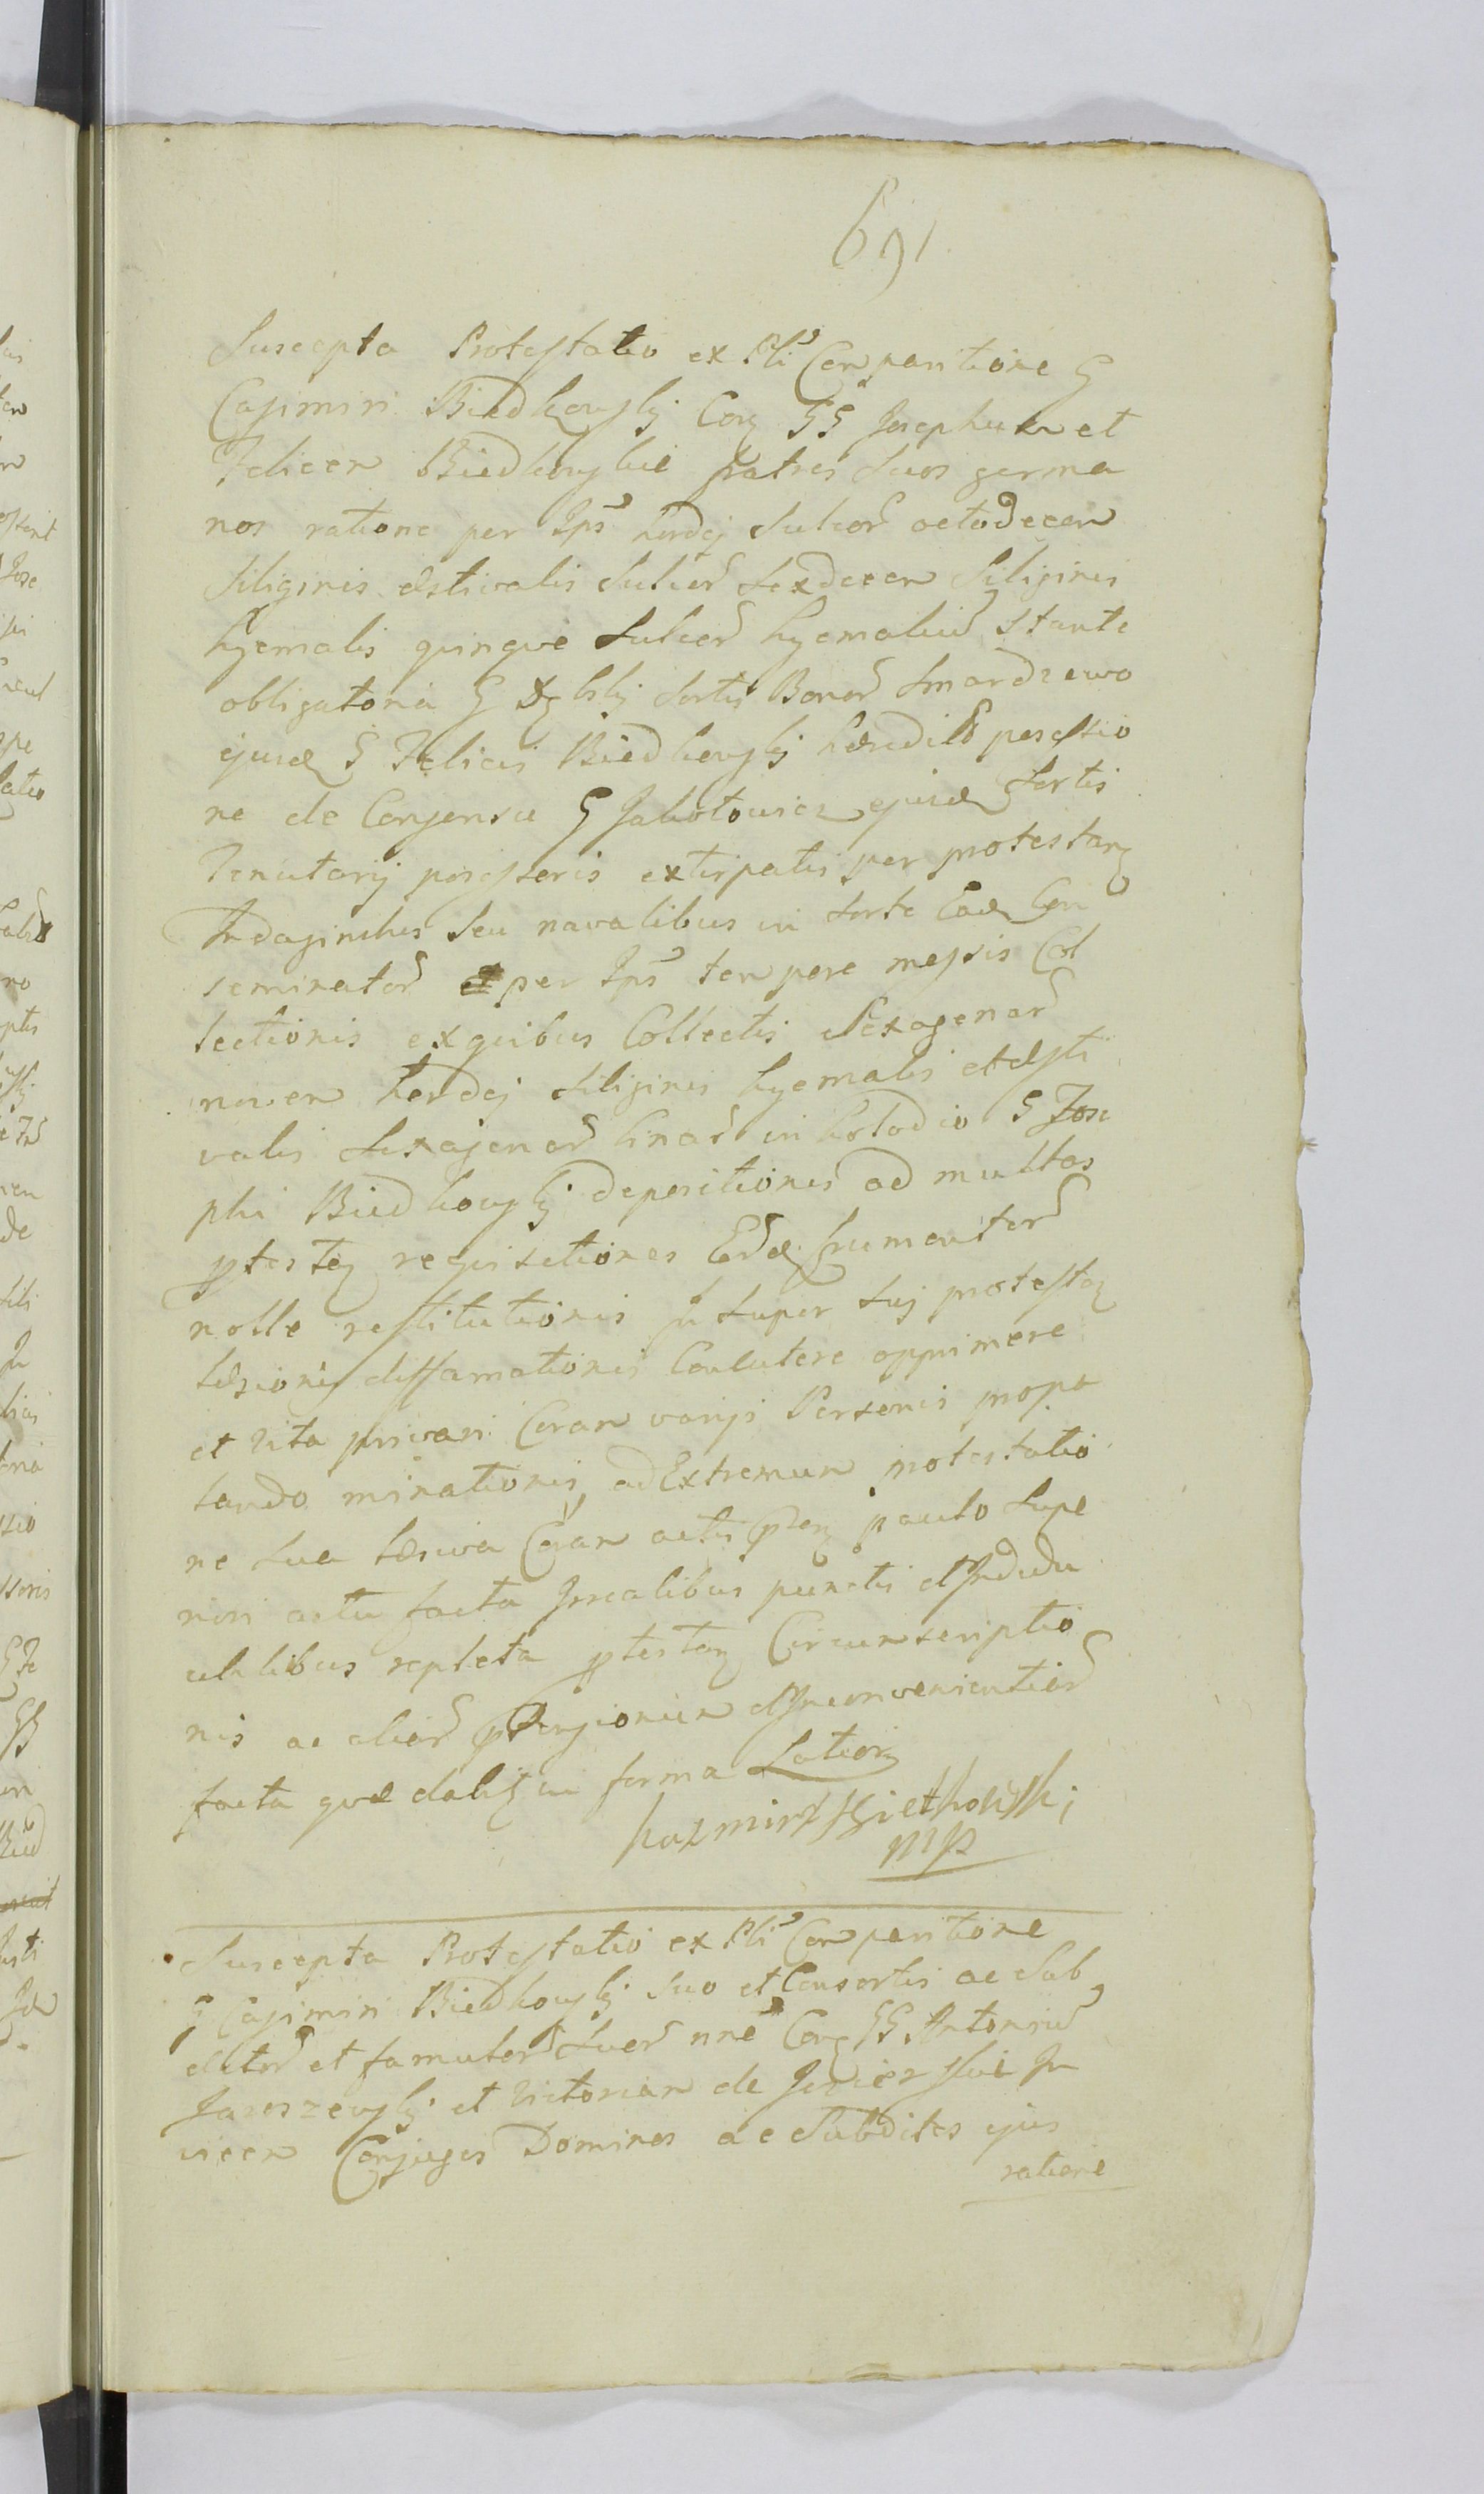 691
Suscepta Protestatio ex Pli Comparitione G
Casimiri Biedkowskj Cong GG Josephum et
Felicem Biedkowskie fratres suos germa
nos ratione per Ips hordej sulcor octodecem
siliginis æstivalis sulcor sexdecem siliginis
hyemalis quinque sulcor hyemaliu stante
obligatoria G sortis Bonor Smardzewo
ejusd G Felicis Biedkowskj hæredit possessio
ne de Consensu G Jakotowicz ejusd sortis
Tenutarij possessoris extirpatis per protestang
Indaginibus seu navalibus in sorte Ead Con
seminator et per Ips tempore messis Col
lectionis ex quibus Collectis sexagenar
novem hordej siliginis hyemalis et æsti
valis sexagenar binar in G Jose
phi Biedkowskj depositionis ad multas
ptestg requisitiones Eor frumentor
nolle restitutionis In super suj protestg
læsionis diffamationis Conlutere opprimere
et vita privari Coram varijs Personis propa
lando minationis ad Extremum protestatio
ne sua læsiva Coram actis pntg paulo supe
riori actu facta Irrealibus punctis et Indedu
cibilibus repleta ptestg Circumscriptio
nis ac alior Inconvenientior
facta quæ dabitg in forma Latiorj
kazmirz Bietkowski
mp
Suscepta Protestatio ex Pli Comparitione
G Casimiri Biedkowskj suo et Consortis ac Sub
ditor et famulor suor nne Cong GG Antoniu
Jaroszewskj et Victoriam de In
vicem Conjuges Dominos ac Subditos ejus
ratione